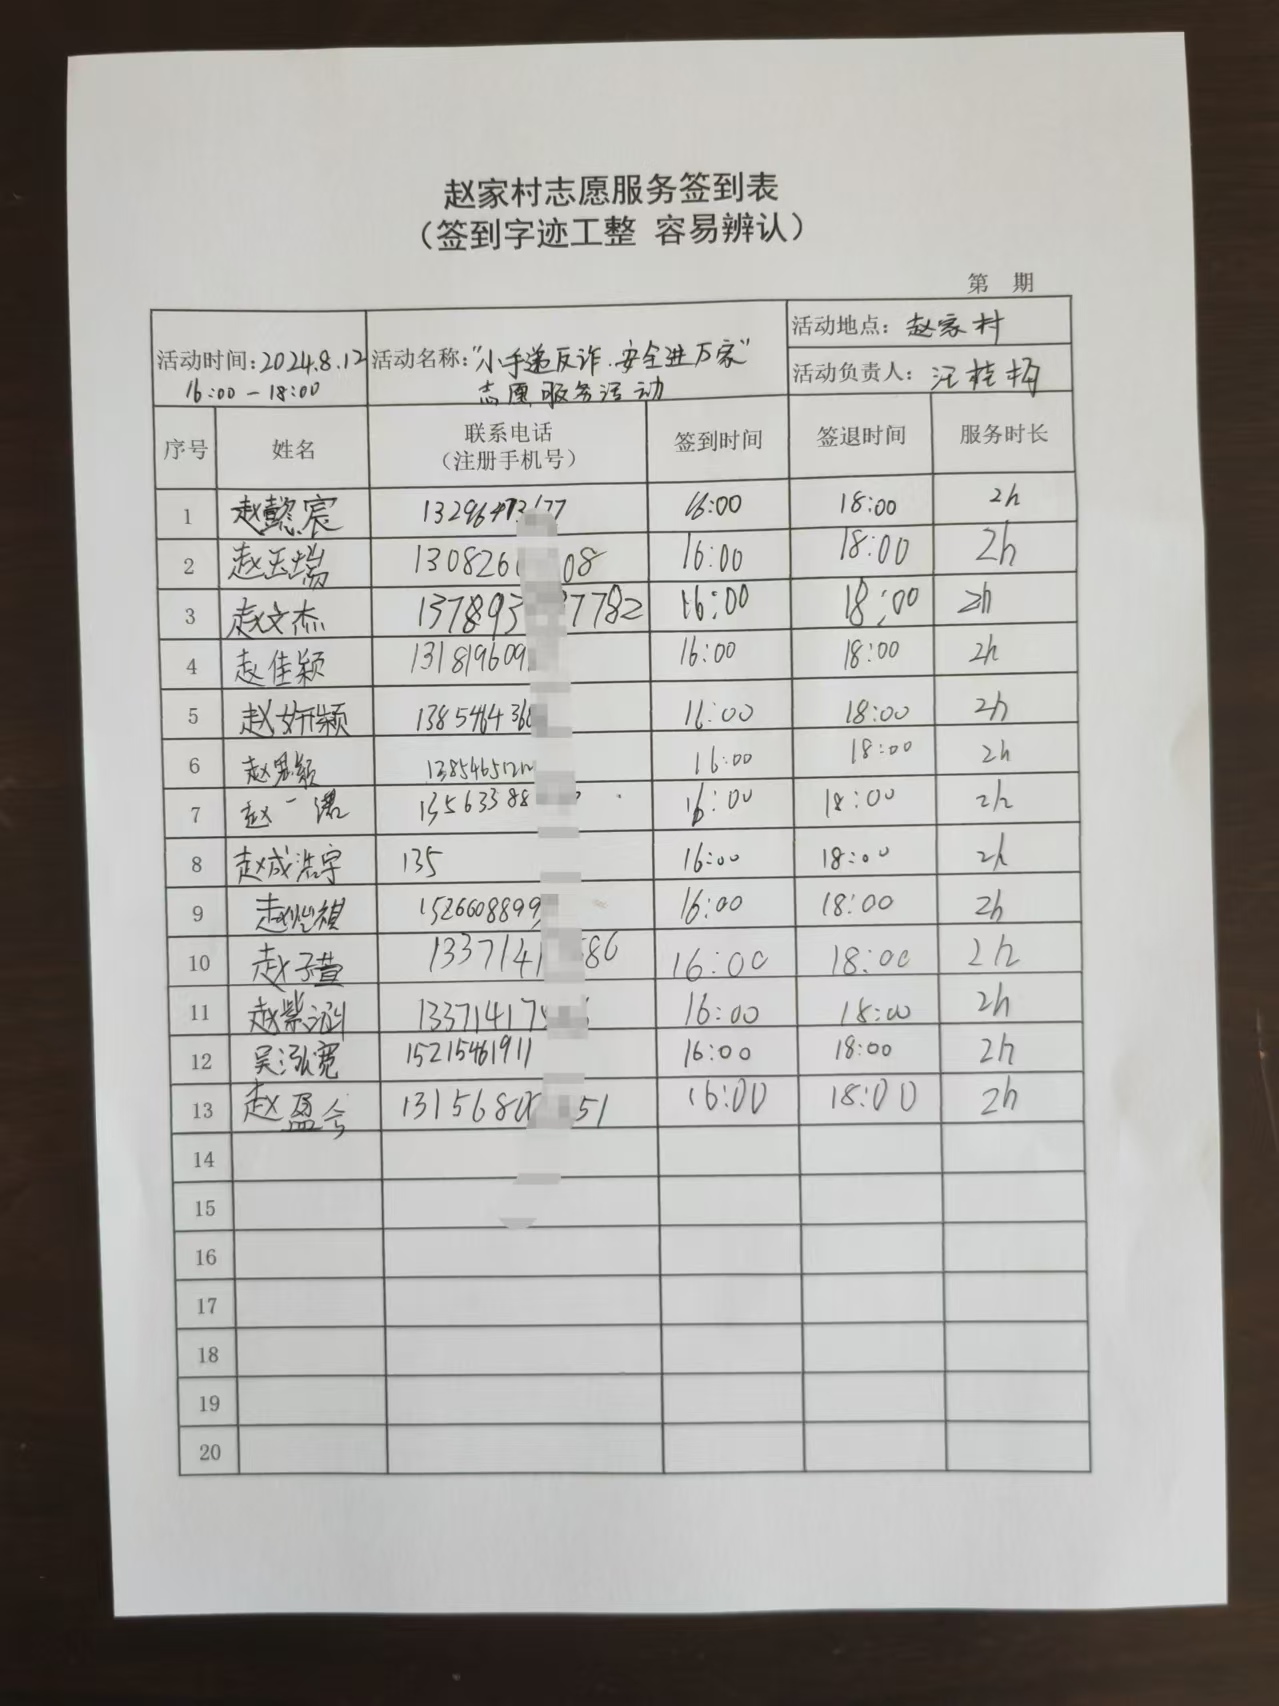 赵家村志愿服务签到表
（签到字迹工整 容易辨认）
第 期
活动时间：2024.8.12 16:00-18:00
活动名称："小手递反诈.安全进万家" 志愿服务活动
活动地点：赵家村
活动负责人：汪桂梅
序号 姓名 联系电话（注册手机号） 签到时间 签退时间 服务时长
1 赵懿宸 16:00 18:00 2h
2 赵玉瑞 130826 08 16:00 18:00 2h
3 赵文杰 137893 7782 16:00 18:00 2h
4 赵佳颖 131819609 16:00 18:00 2h
5 赵妍颖 138546436 16:00 18:00 2h
6 赵 颖 16:00 18:00 2h
7 赵一诺 13563388 16:00 18:00 2h
8 赵成浩宇 135 16:00 18:00 2h
9 赵 祺 1526608899 16:00 18:00 2h
10 赵子萱 1337141 86 16:00 18:00 2h
11 赵紫涵 13371417 16:00 18:00 2h
12 吴泓宽 15215461911 16:00 18:00 2h
13 赵盈 131568 51 16:00 18:00 2h
14
15
16
17
18
19
20